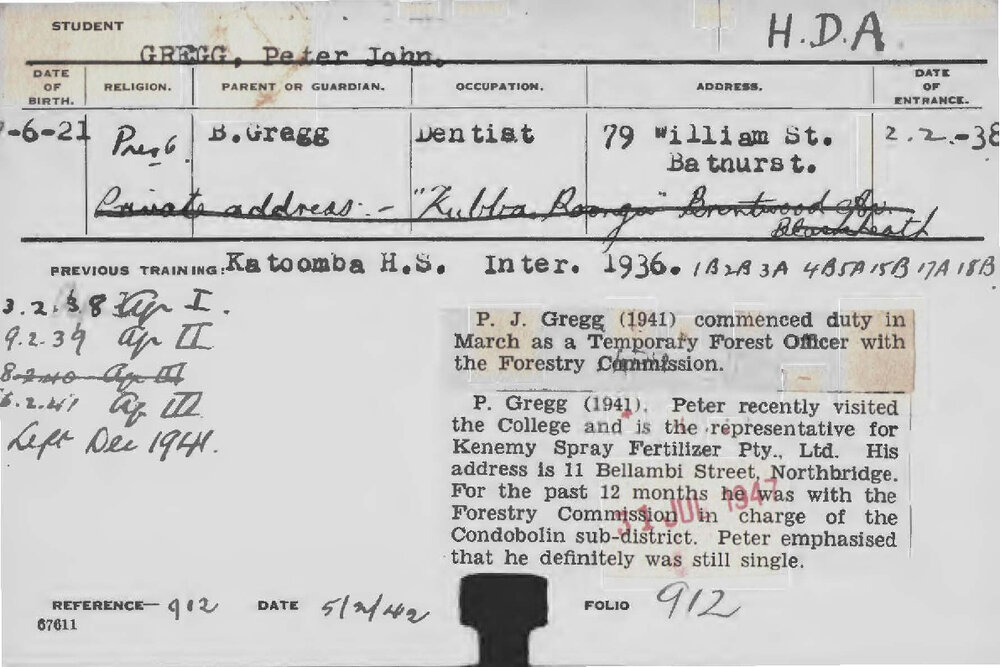 STUDENT
H.D.A
GREGG, Peter John.
DATE OF BIRTH. RELIGION. PARENT OR GUARDIAN. OCCUPATION. ADDRESS. DATE OF ENTRANCE.
-6-21 Presb. B.Gregg Dentist 79 William St. 2.2.-38
Bathurst.
Private address:- "Kubba Roonga" Brentwood Av.
Blackheath
PREVIOUS TRAINING: Katoomba H.S. Inter. 1936. 1B2B3A 4B5A15B17A18B
3.2.38 Ag I.
9.2.39 Ag II
8.2.40 Ag III
.2.41 Ag III
Left Dec 1941.
P. J. Gregg (1941) commenced duty in
March as a Temporary Forest Officer with
the Forestry Commission.
P. Gregg (1941). Peter recently visited
the College and is the representative for
Kenemy Spray Fertilizer Pty., Ltd. His
address is 11 Bellambi Street, Northbridge.
For the past 12 months he was with the
Forestry Commission in charge of the
Condobolin sub-district. Peter emphasised
that he definitely was still single.
31 JUL 1947
REFERENCE— 912 DATE 5/2/42 FOLIO 912
67611